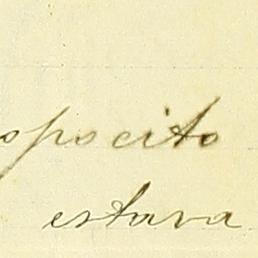 opocito
estava